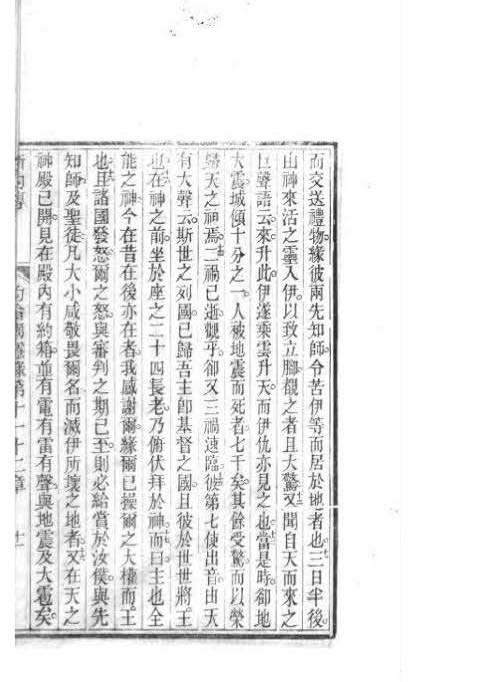 而交送禮物。緣彼兩先知師。令苦伊等而居於地者也。三日半後。
山神來活之靈入伊。以致立腳。覩之者且大驚。十二又聞自天而來之
巨聲語云。來升此。伊遂乘雲升天。而伊仇亦見之也。十三當是時。卻地
大震。城傾十分之一。人被地震而死者七千矣。其餘受驚。而以榮
歸天之神焉。十四二禍已逝。觀乎。卻又三禍速臨。十五彼第七使出音。由天
有大聲云。斯世之列國。已歸吾主卽基督之國。且彼於世世將王
也。在神之前。坐於座之二十四長老。乃俯伏拜於神。而曰。主也全
能之神。今在昔在後亦在者。我感謝爾。緣爾已操爾之大權而王
也。且諸國發怒。爾之怒與審判之期已至。則必給賞於汝僕。與先
知師及聖徒。凡大小咸敬畏爾名。而滅伊所壞之地者。又在天之
神殿已開。見在殿內有約箱。並有電有雷有聲。與地震及大雹矣。